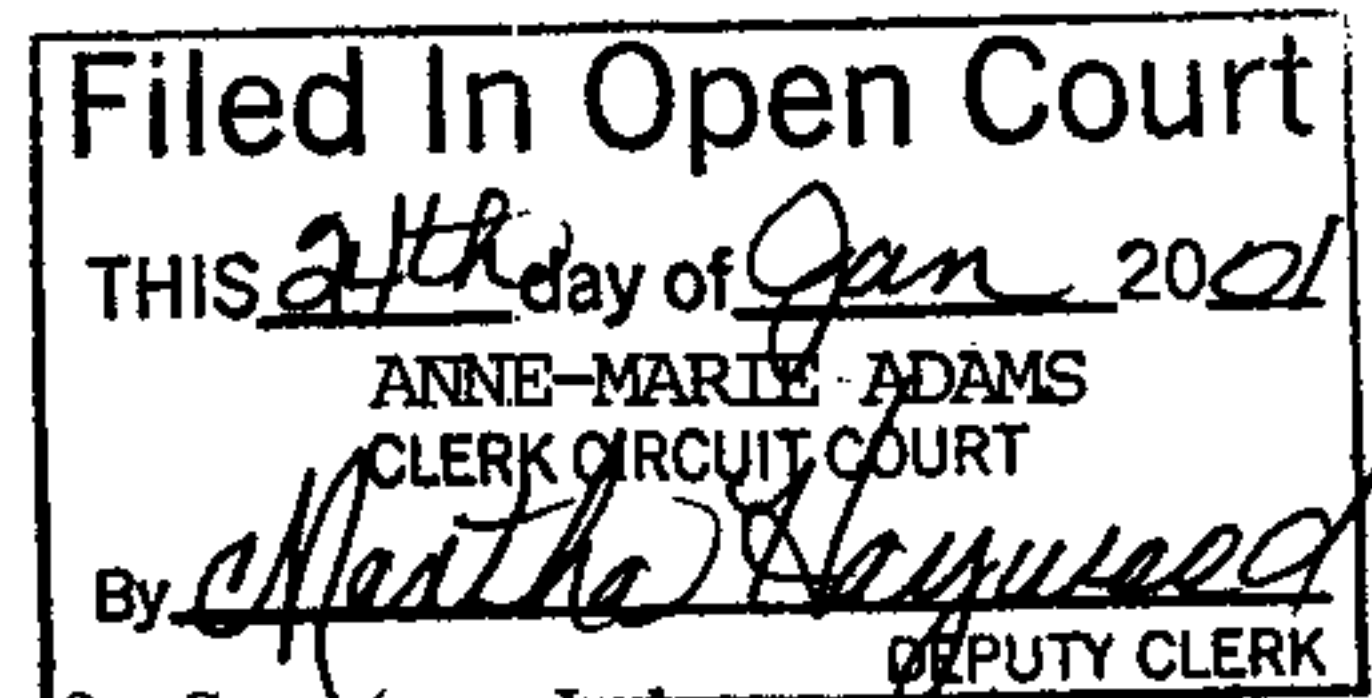 Filed In Open Court
THIS 24th day of Jan 2001
ANNE-MARIE ADAMS
CLERK CIRCUIT COURT
By Martha Haywood
DEPUTY CLERK